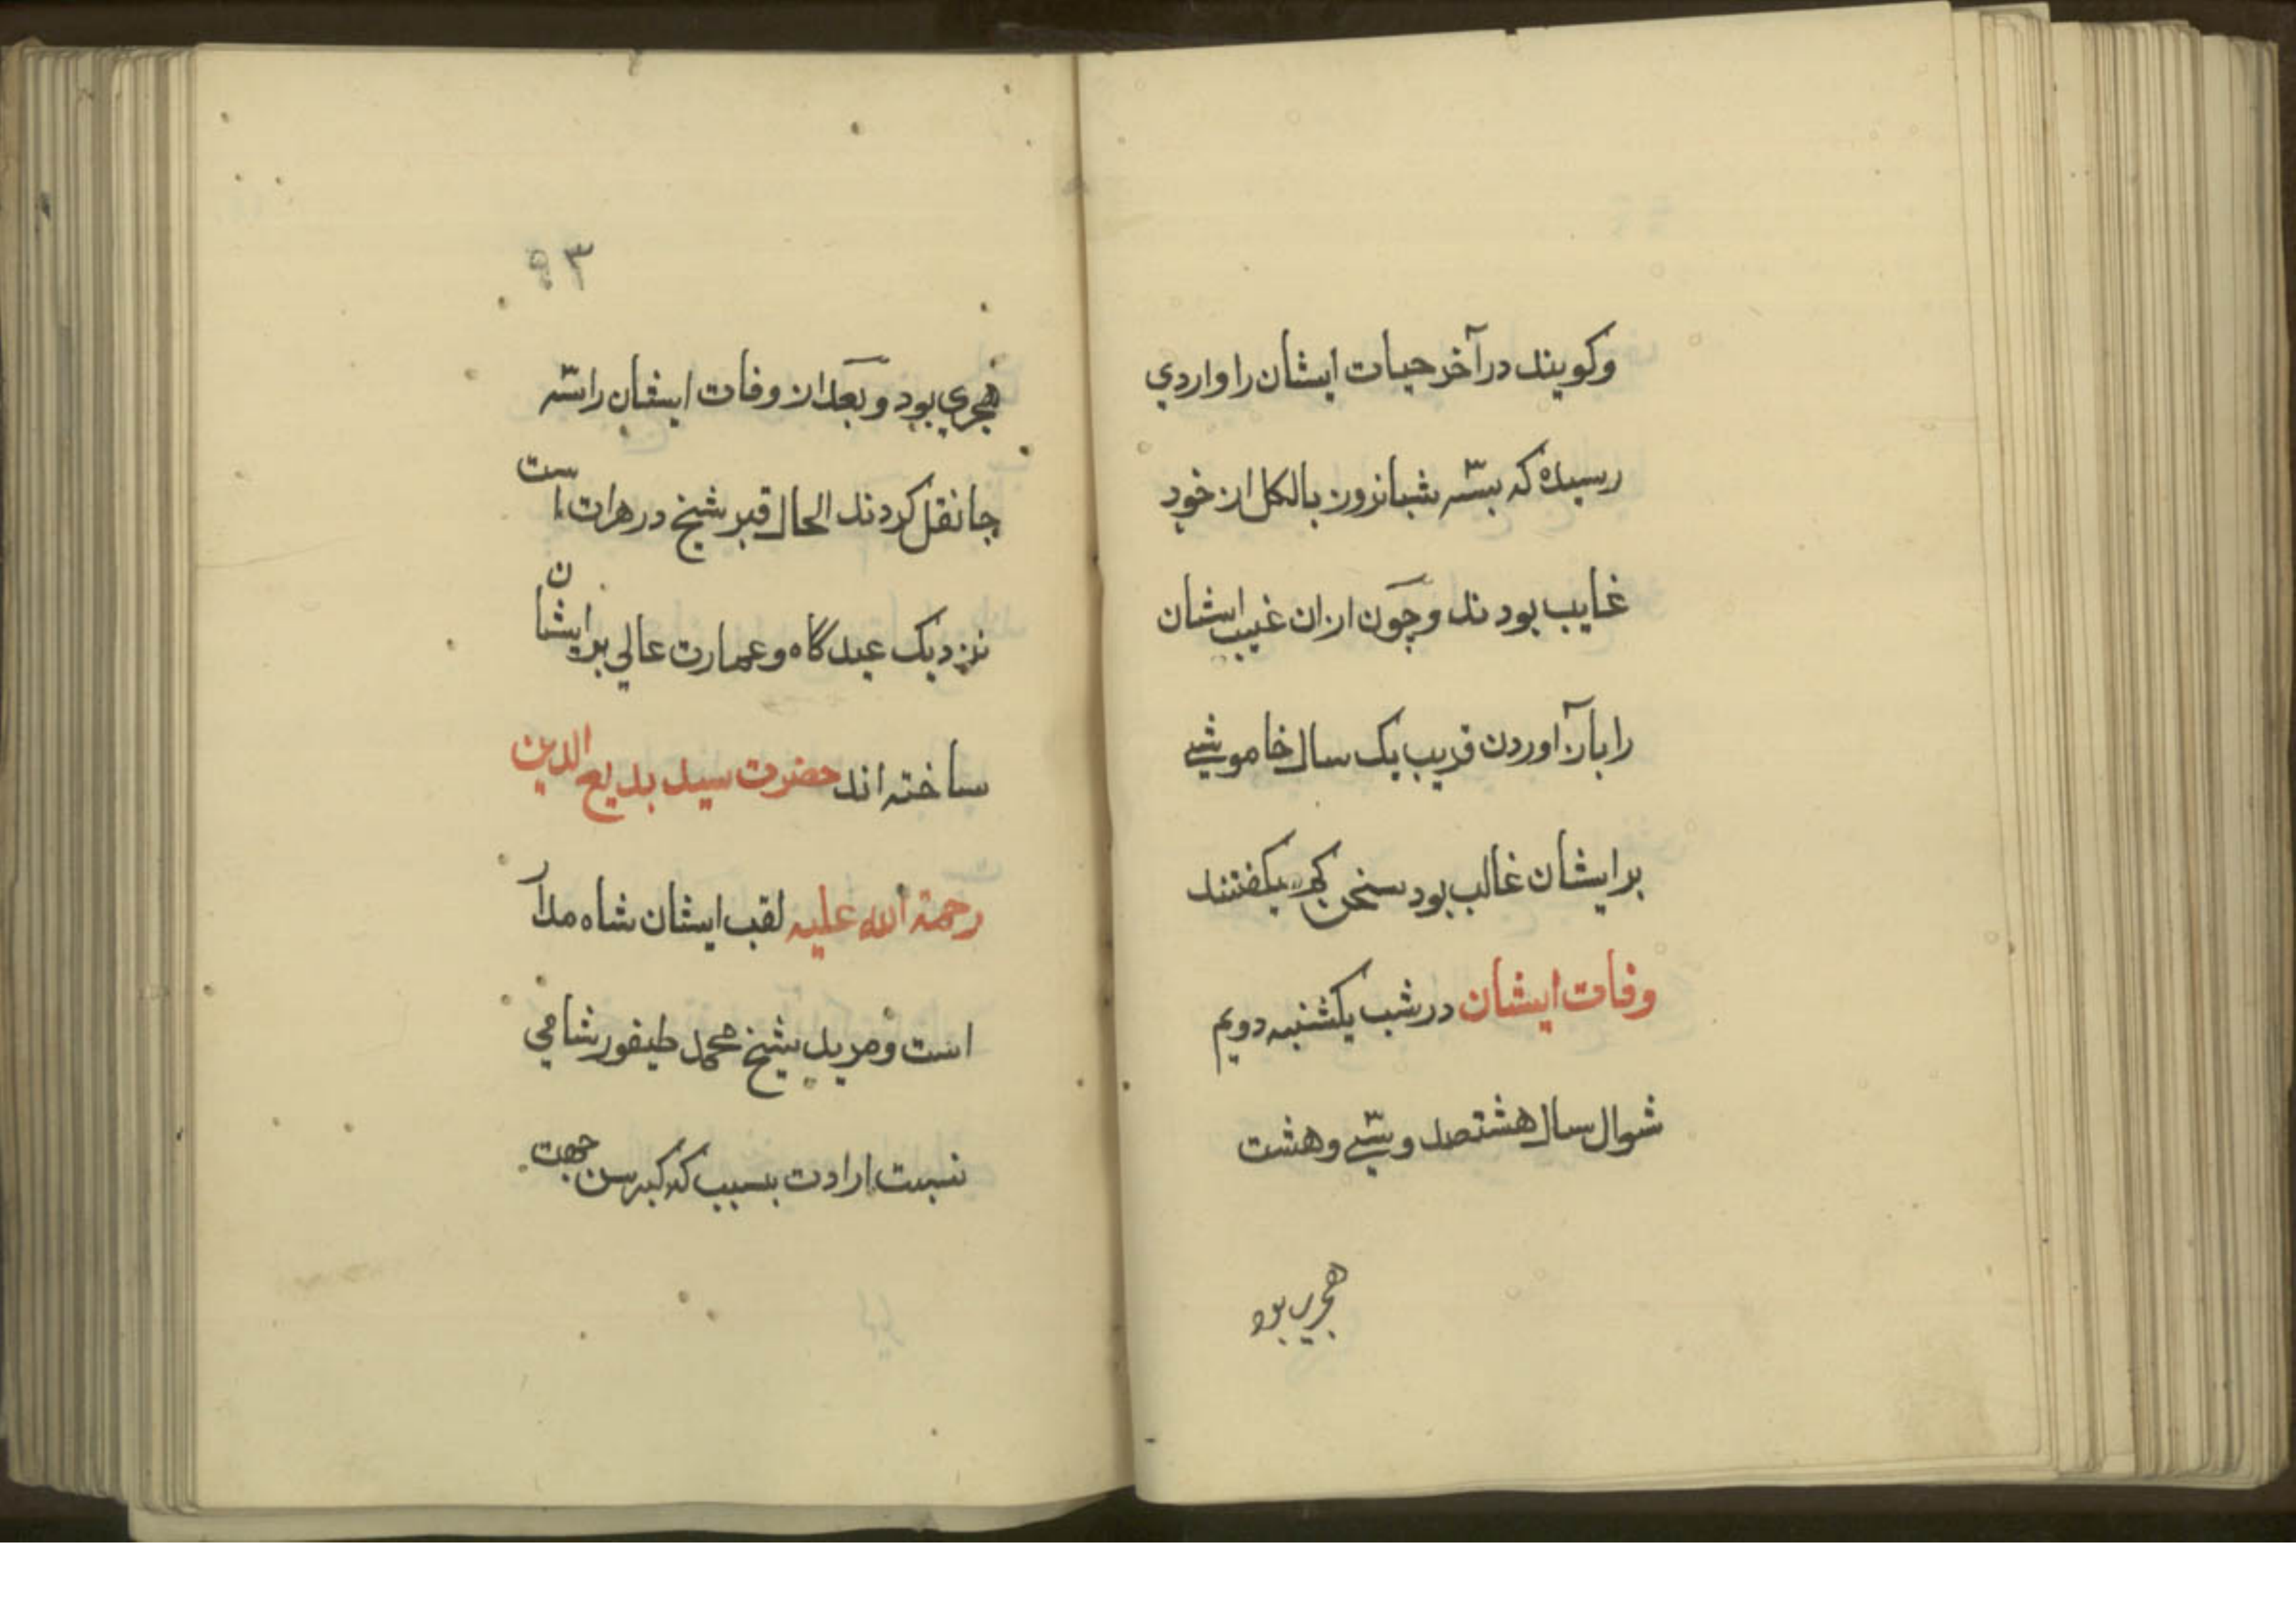 وکویند در آخر حیات ایشان را واردی
رسیده که بسّه شبانروز بالکل از خود
غایب بودند و چون ازان غیب ایشان
را باز آوردن قریب یک سال خاموشی
بر ایشان غالب بود سخن کم میکفتند
وفات ایشان در شب یکشنبه دویم
شوال سال هشتصد و سّی و هشت
هجری بود
۹۳
هجری بود و بعد از وفات ایشان را سّه
جا نقل کردند الحال قبر شیخ در هرات است
نزدیک عیدگاه و عمارت عالی بر ایشان
ساخته اند حضرت سید بدیع الدین
رحمة الله علیه لقب ایشان شاه مدار
است و مرید شیخ محمد طیفور شامی
نسبت ارادت بسبب که کبر سن جهت